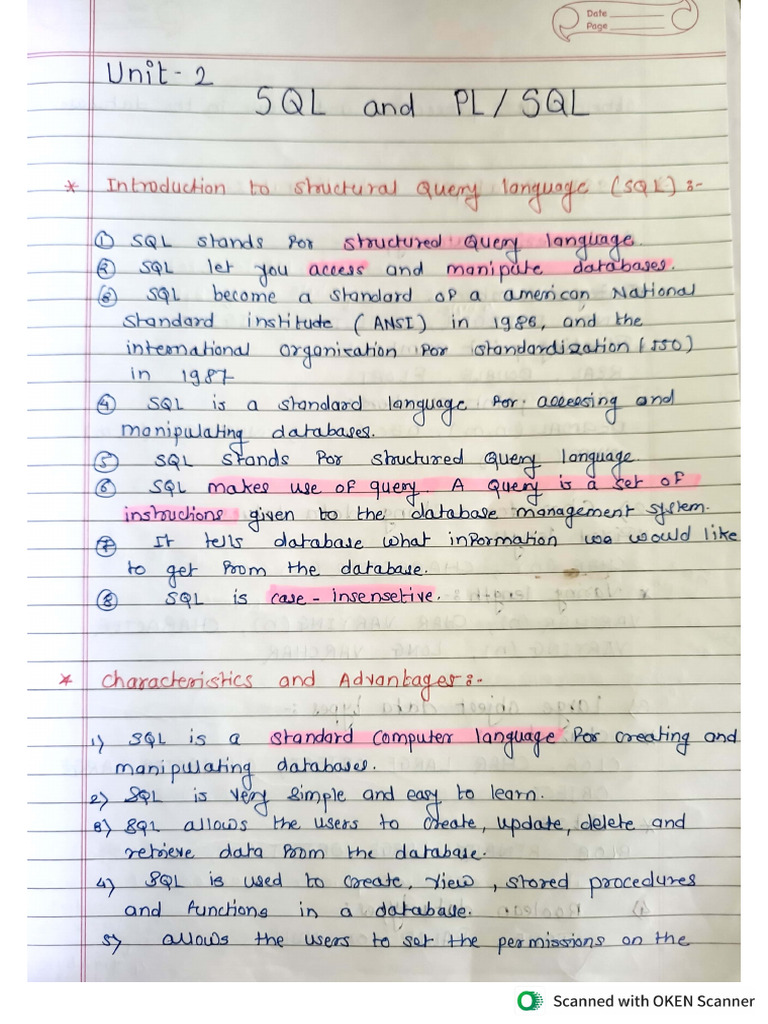 Date
Page
Unit - 2
SQL and PL / SQL
* Introduction to Structural Query language (SQL) :-
① SQL stands for structured Query language.
② SQL let you access and manipute databases.
③ SQL become a standard of a american National
Standard institude (ANSI) in 1986, and the
international organisation for standardization (ISO)
in 1987
④ SQL is a standard language for accessing and
manipulating databases.
⑤ SQL stands for structured Query language.
⑥ SQL makes use of query. A Query is a set of
instructions given to the database management system.
⑦ It tells database what information we would like
to get from the database.
⑧ SQL is case - insensetive.
* Characteristics and Advantages :-
1) SQL is a standard computer language for creating and
manipulating databases.
2) SQL is very simple and easy to learn.
3) SQL allows the users to create, update, delete and
retrieve data from the database.
4) SQL is used to create, view, stored procedures
and functions in a database.
5) allows the users to set the permissions on the
Scanned with OKEN Scanner